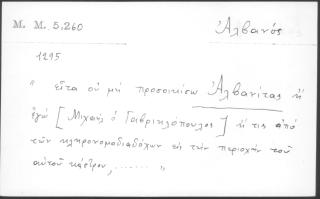 M. M. 5,260 Ἀλβανός
1295
"Εἶτα οὐ μὴ προσοικίσω Ἀλβανίτας ἢ
ἐγὼ [Μιχαὴλ ὁ Γαβριηλόπουλος] ἤ τις ἀπὸ
τῶν κληρονομοδιαδόχων εἰς τὴν περιοχὴν τοῦ
αὐτοῦ κάστρου, ....... "